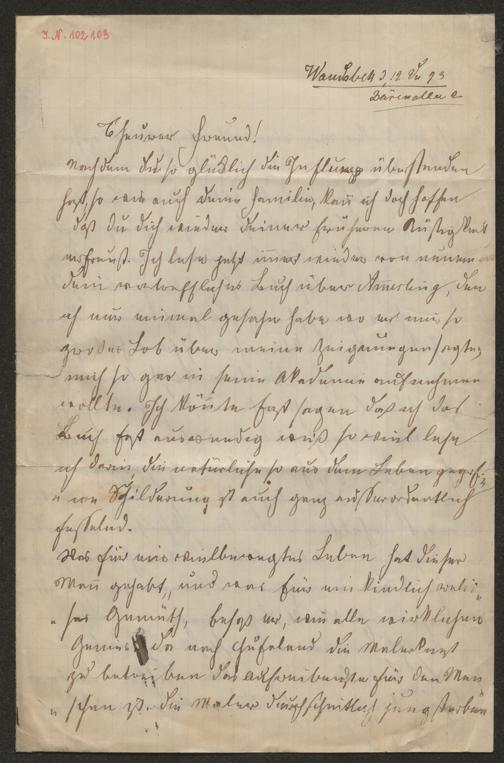 J.N. 102103
Wandsbek d 12 Dec 93
Bärenallee 2
Theurer Freund!
Nachdem Du so glücklich die Influenza überstanden
hast, so wie auch deine Familie, kan ich doch hoffen
daß du dich wieder deiner früheren Rüstigkeit
erfreust. Ich lese jetzt immer wieder von neuem
dein vortreffliches Buch über Amerling, den
ich nur einmal gesehn habe wo er mir so
großes Lob über meine Zeignungen sagte,
mich so gar in seine Akademie aufnehmen
wollte. Ich könte fast sagen daß ich das
Buch fast auswendig weiß so viel lese
ich darin, die natürliche so aus dem Leben gegrif-
ene Schilderung ist auch ganz ausserordentlich
fesselnd.
Was für ein vielbewegtes Leben hat dieser
Man gehabt, und was für ein kindlich reli-
ses Gemüth, besaß er, wie alle wirklichen
Genies da nach Hufeland die Malerkunst
zu betreiben das aufreibendste für den Men
schen ist. Die Maler durchschnittlich jung sterben